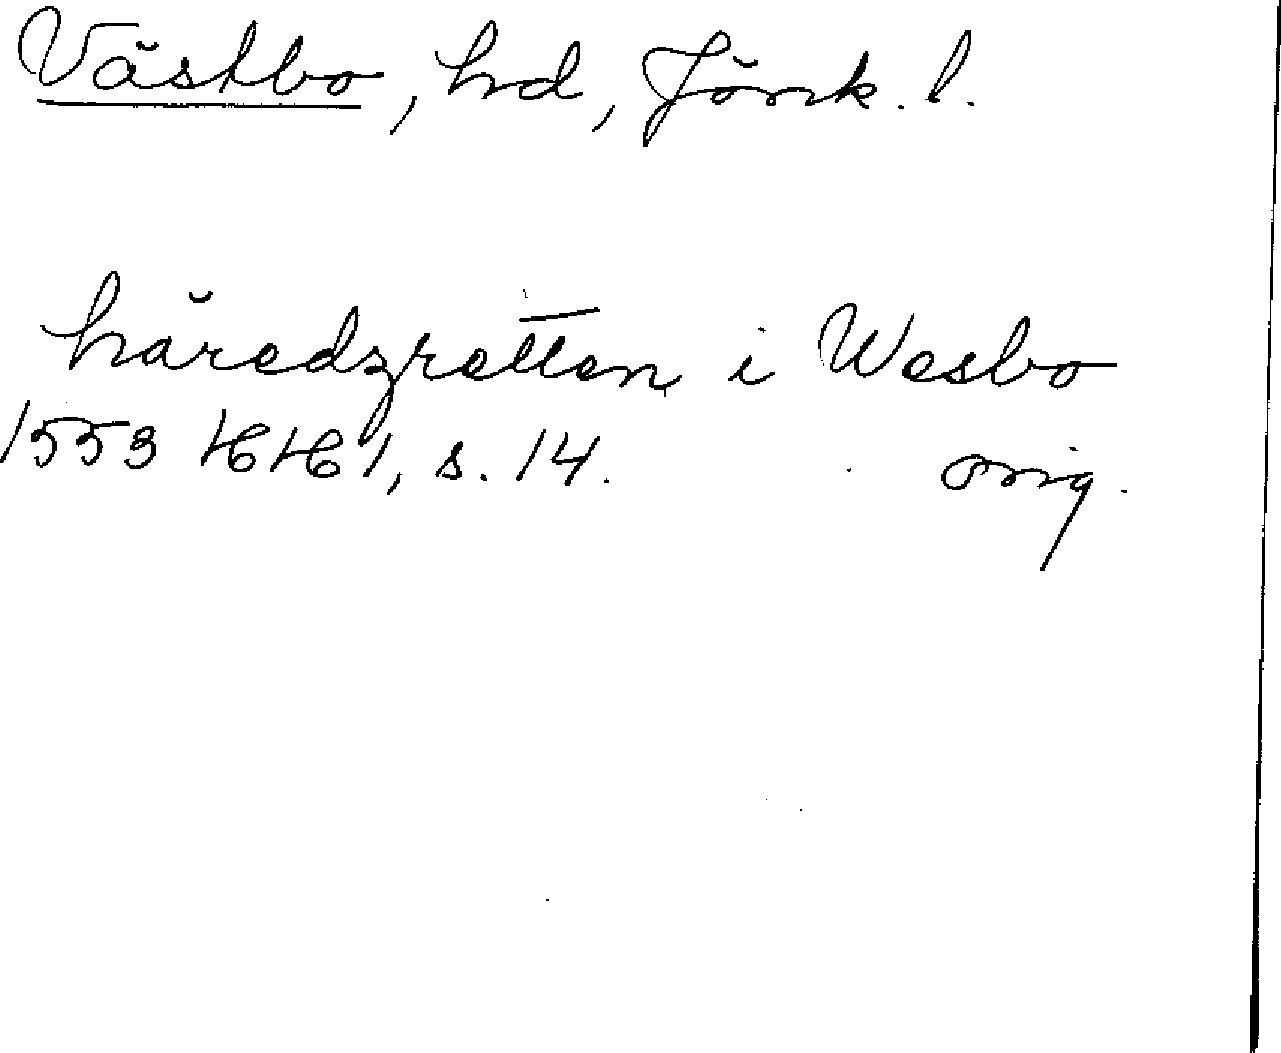 Västbo, hd, Jönk. l.
häredzretten i Wesbo
1553 HH 1, s. 14. orig.